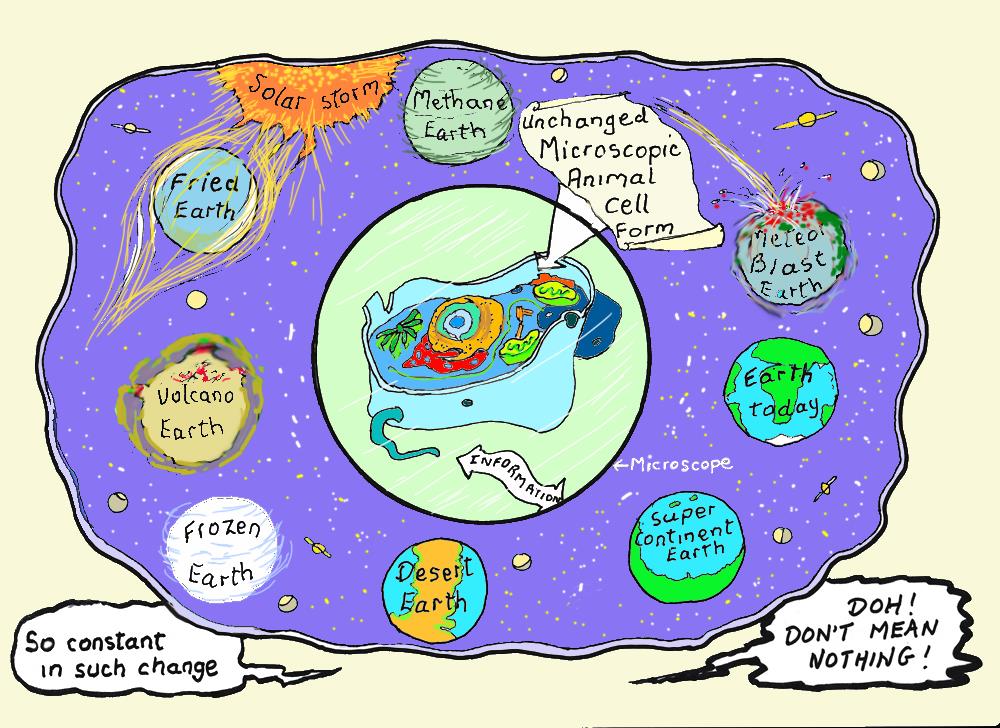 Solar storm
Methane
Earth
Unchanged
Microscopic
Animal
Cell
Form
Fried
Earth
Meteor
Blast
Earth
Volcano
Earth
Earth
today
INFORMATION
←Microscope
Frozen
Earth
Desert
Earth
Super
Continent
Earth
So constant
in such change
DOH!
DON'T MEAN
NOTHING!